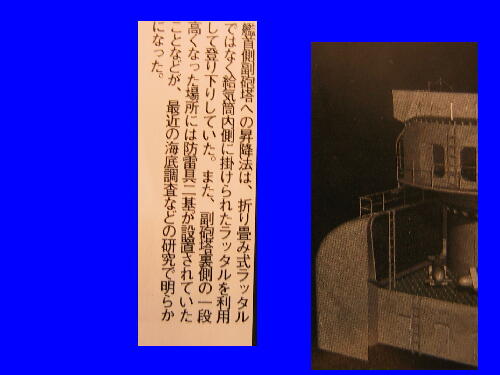 艦首側副砲塔への昇降法は、折り畳み式ラッタル
ではなく給気筒内側に掛けられたラッタルを利用
して登り下りしていた。また、副砲塔裏側の一段
高くなった場所には防雷具二基が設置されていた
ことなどが、最近の海底調査などの研究で明らか
になった。